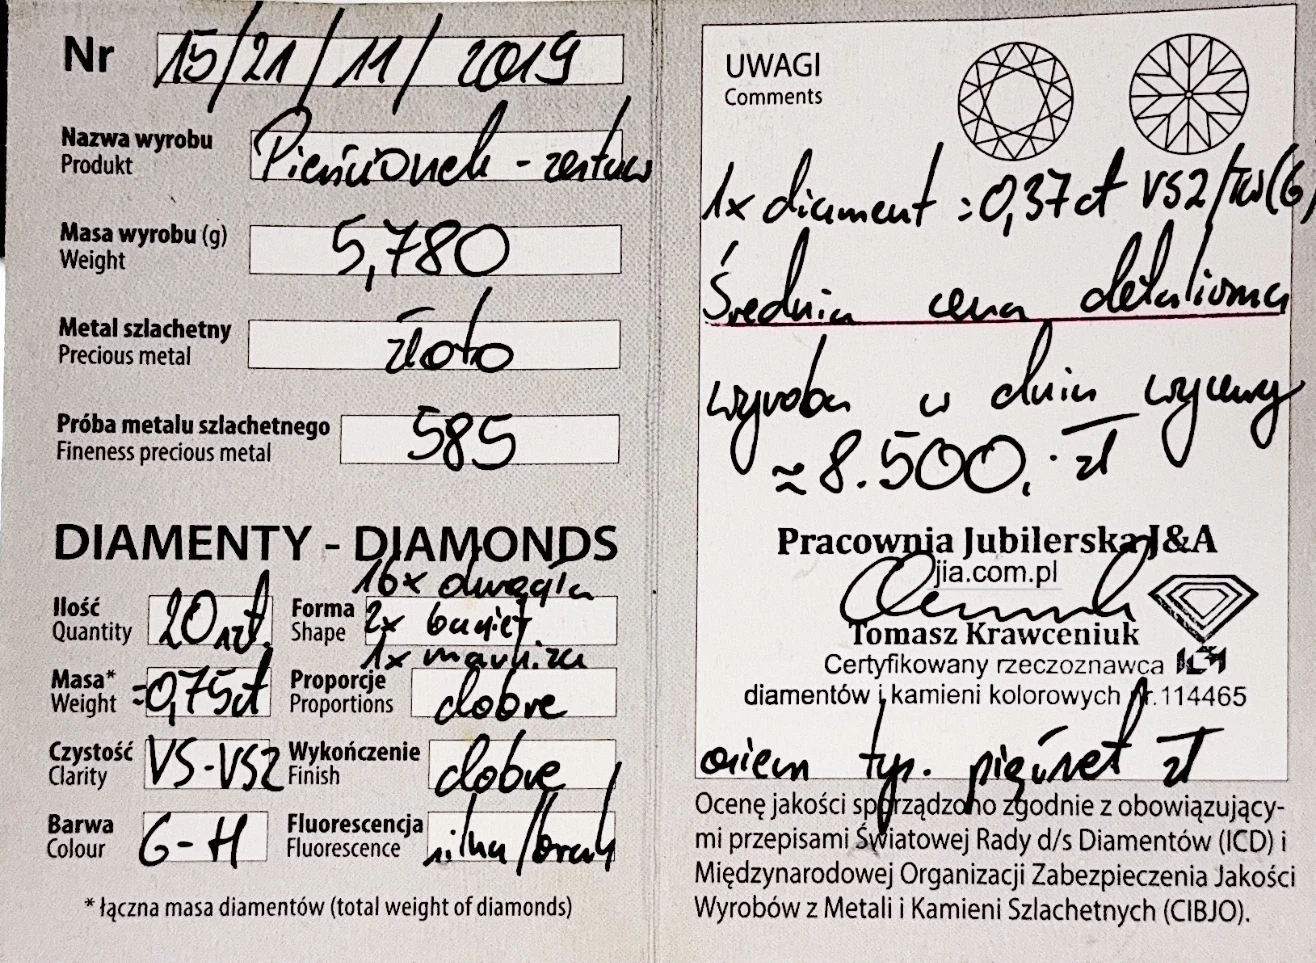 Nr 15/21/11/2019
Nazwa wyrobu
Produkt
Pierścionek - zestaw
Masa wyrobu (g)
Weight
5,780
Metal szlachetny
Precious metal
złoto
Próba metalu szlachetnego
Fineness precious metal
585
DIAMENTY - DIAMONDS
Ilość
Quantity
20 szt.
Forma
Shape
16x okrągła
2x bagiet
1x markiza
Masa*
Weight
=0,75ct
Proporcje
Proportions
dobre
Czystość
Clarity
VS-VS2
Wykończenie
Finish
dobre
Barwa
Colour
G-H
Fluorescencja
Fluorescence
silna/brak
* łączna masa diamentów (total weight of diamonds)
UWAGI
Comments
1x diament =0,37ct VS2/TW(G)
Średnia cena detaliczna
wyrobu w dniu wyceny
≈8.500,- zł
Pracownia Jubilerska J&A
jia.com.pl
Tomasz Krawceniuk
Certyfikowany rzeczoznawca
diamentów i kamieni kolorowych nr.114465
osiem tys. pięćset zł
Ocenę jakości sporządzono zgodnie z obowiązujący-
mi przepisami Światowej Rady d/s Diamentów (ICD) i
Międzynarodowej Organizacji Zabezpieczenia Jakości
Wyrobów z Metali i Kamieni Szlachetnych (CIBJO).